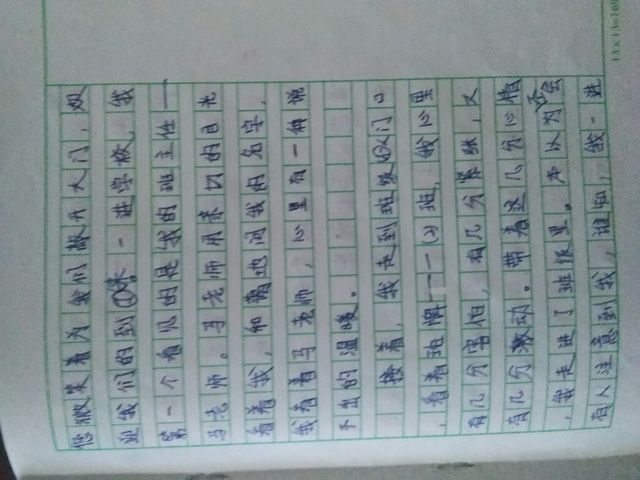 微笑着为我们敞开大门，欢
迎我们的到来。一进学校，我
第一个看见的是我的班主任一
马老师。马老师用亲切的目光
看着我，和蔼地问我的名字，
我看着马老师，心里有一种说
不出的温暖。
接着，我走到班级的门口
，看着班牌一一班，我心里
有几分害怕，有几分紧张，又
有几分激动。带着这几分心情
，我走进了班级里。本以为不会
有人注意到我，谁知，我一进
13x13=169